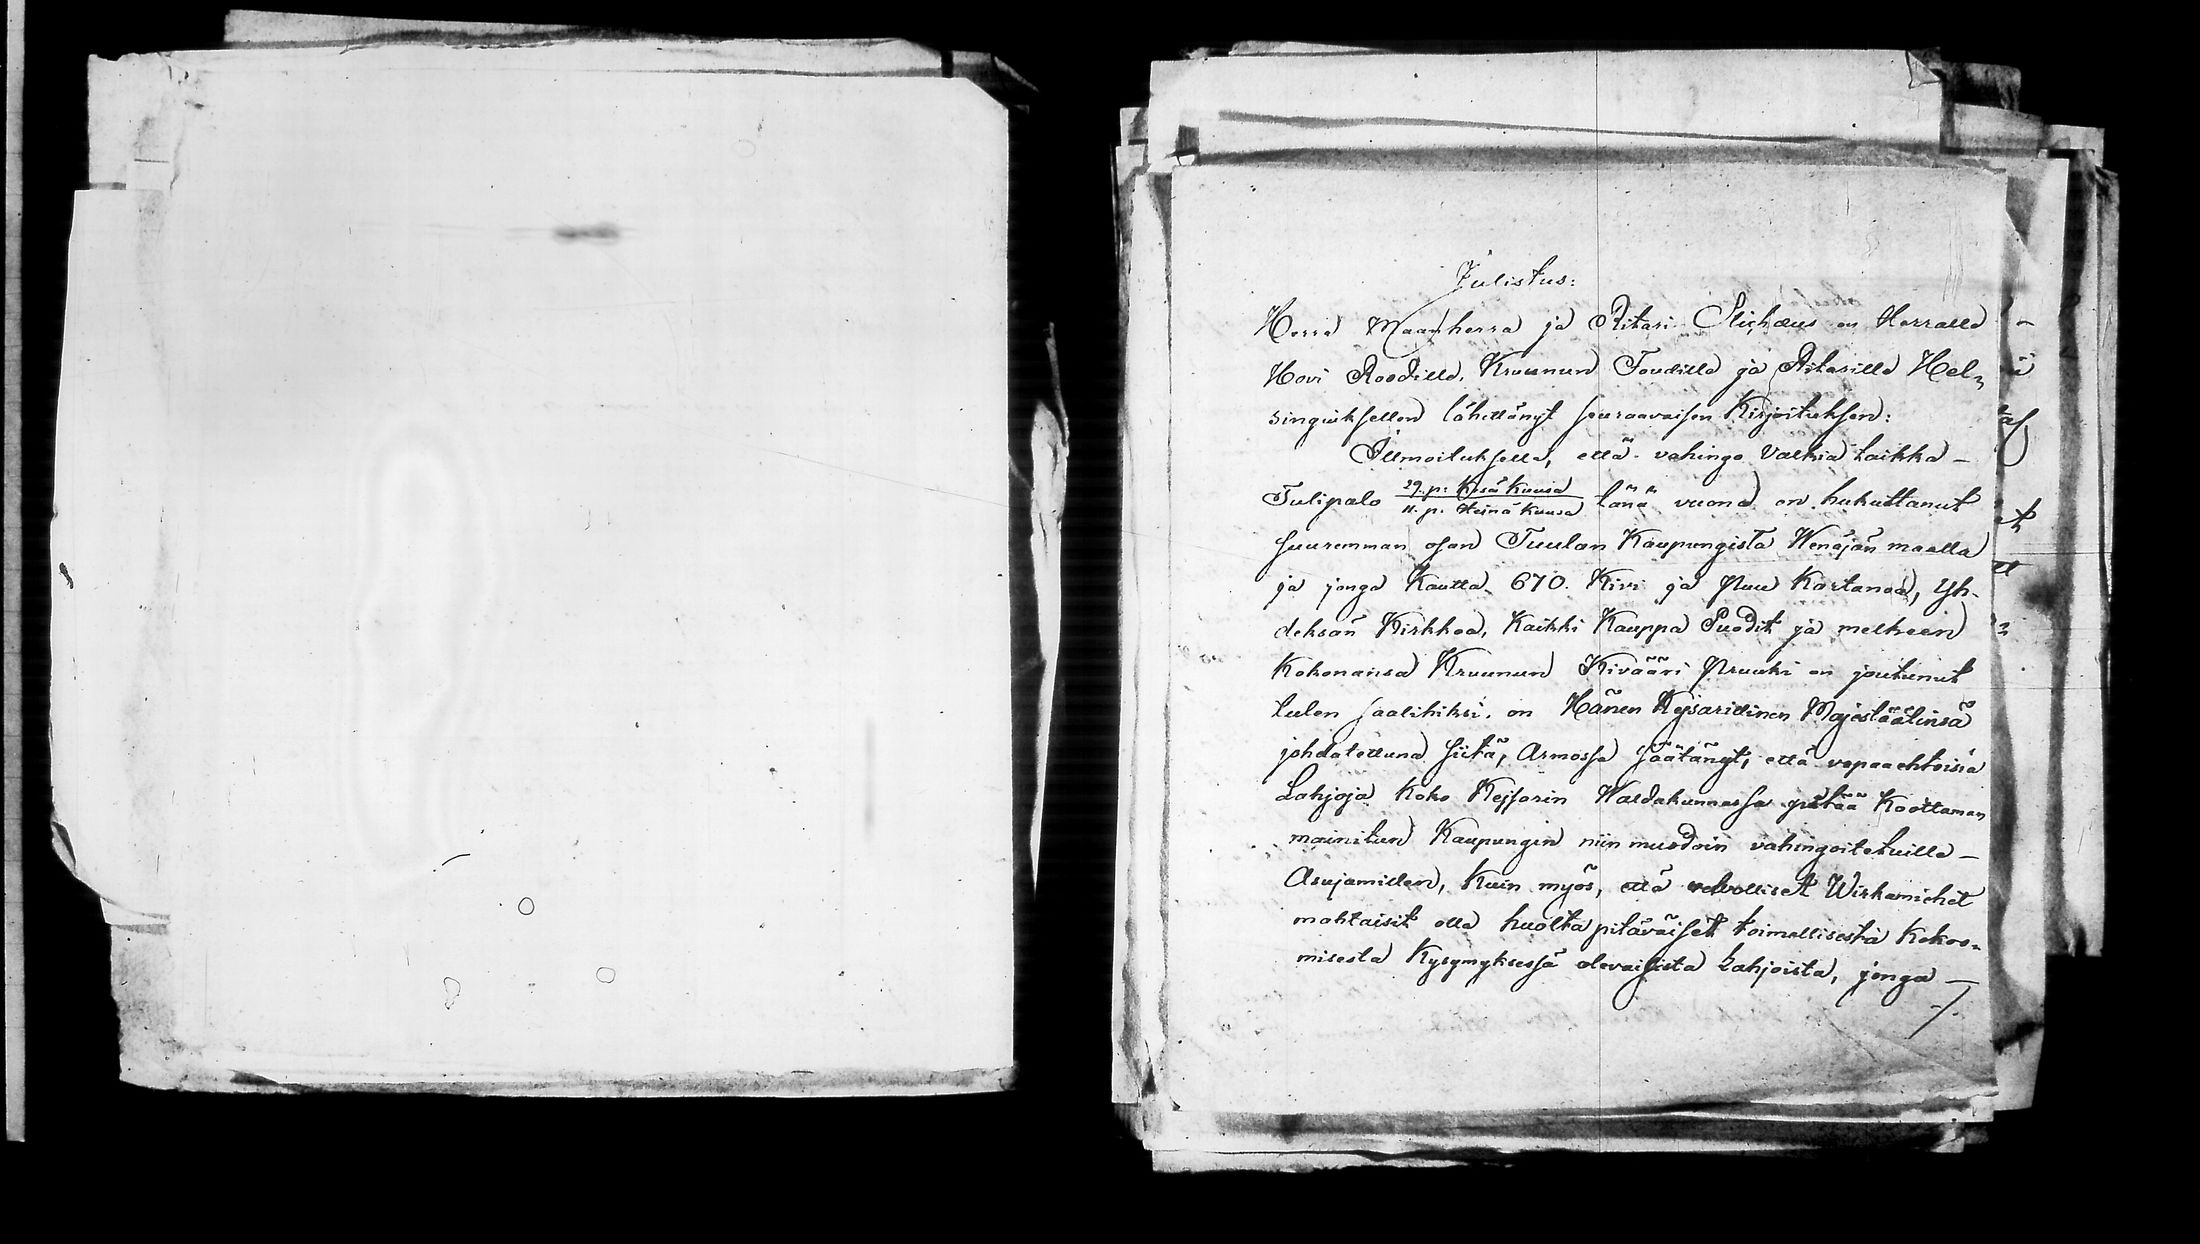 Julistus:
Herra Maanherra ja Ritari Stichæus on Herralle
Hovi Roodille, Kruunun Foudille ja Ritarille Hel-
singiuksellen lähettänyt seuraavaisen Kirjoituksen:
Illmoituksella, että vahingo Valkia taikka
Tulipalo 29. p: Kesä Kuusa / 11. p. Heinä Kuusa tänä vuona on hukuttanut
suuremman osan Tuulan Kaupungista Wenäjän maalla
ja jonga Kautta 670. Kivi ja Puu Kartanoa, Yh-
deksän Kirkkoa, Kaikki Kauppa Puodit ja melkeen
Kokonansa Kruunun Kivääri Pruuki on joutunut
tulen saalihiksi. on Hänen Kejsarillinen Majestäätinsä
johdatettuna siitä, Armossa säätänyt, että vapaaehtoisia
Lahjoja Koko Kejsarin Waldakunnassa pitää Koottaman
mainitun Kaupungin niin muodoin vahingoitetuille
Asujamillen, Kuin myös, että velvolliset Wirkamiehet
mahtaisit olla huolta pitäväiset toimellisesta Kokoo-
misesta Kysymyksessä olevaisista Lahjoista, jonga